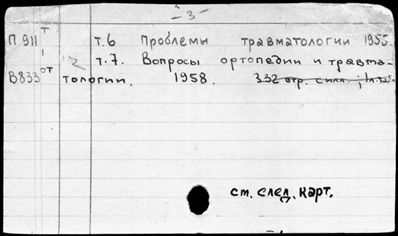 - 3 -
П 911 т т.6 Проблемы травматологии 1955.
1 2 т.7. Вопросы ортопедии и травма-
В833 от тологии. 1958. 332 стр. с илл.;
см. след. карт.